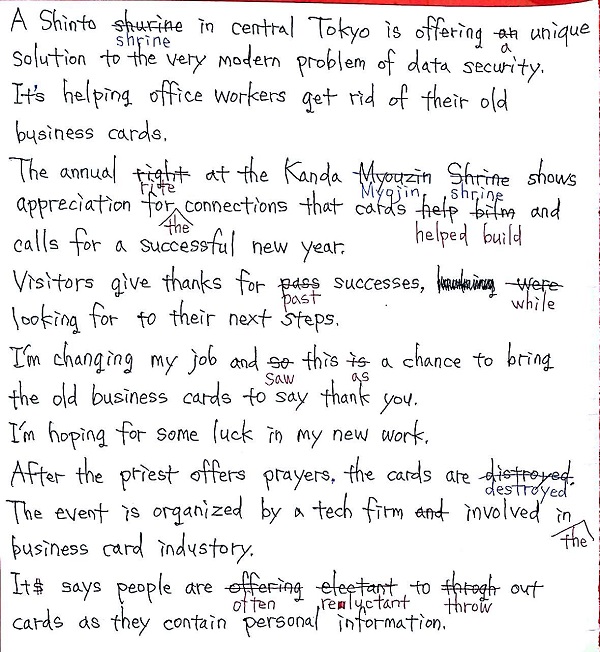 A Shinto shurine in central Tokyo is offering an unique
shrine a
solution to the very modern problem of data security.
It's helping office workers get rid of their old
business cards.
The annual right at the Kanda Myouzin Shrine shows
rite Myojin shrine
appreciation for connections that cards help bilm and
the helped build
calls for a successful new year.
Visitors give thanks for pass successes, were
past while
looking for to their next steps.
I'm changing my job and so this is a chance to bring
saw as
the old business cards to say thank you.
I'm hoping for some luck in my new work.
After the priest offers prayers, the cards are distroyed.
destroyed
The event is organized by a tech firm and involved in
the
business card industory.
It$ says people are offering electant to throgh out
often reluctant throw
cards as they contain personal information.